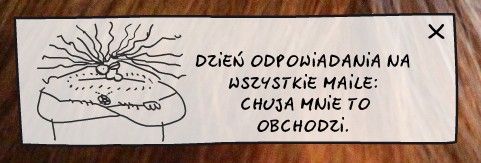 DZIEŃ ODPOWIADANIA NA
WSZYSTKIE MAILE:
CHUJA MNIE TO
OBCHODZI.